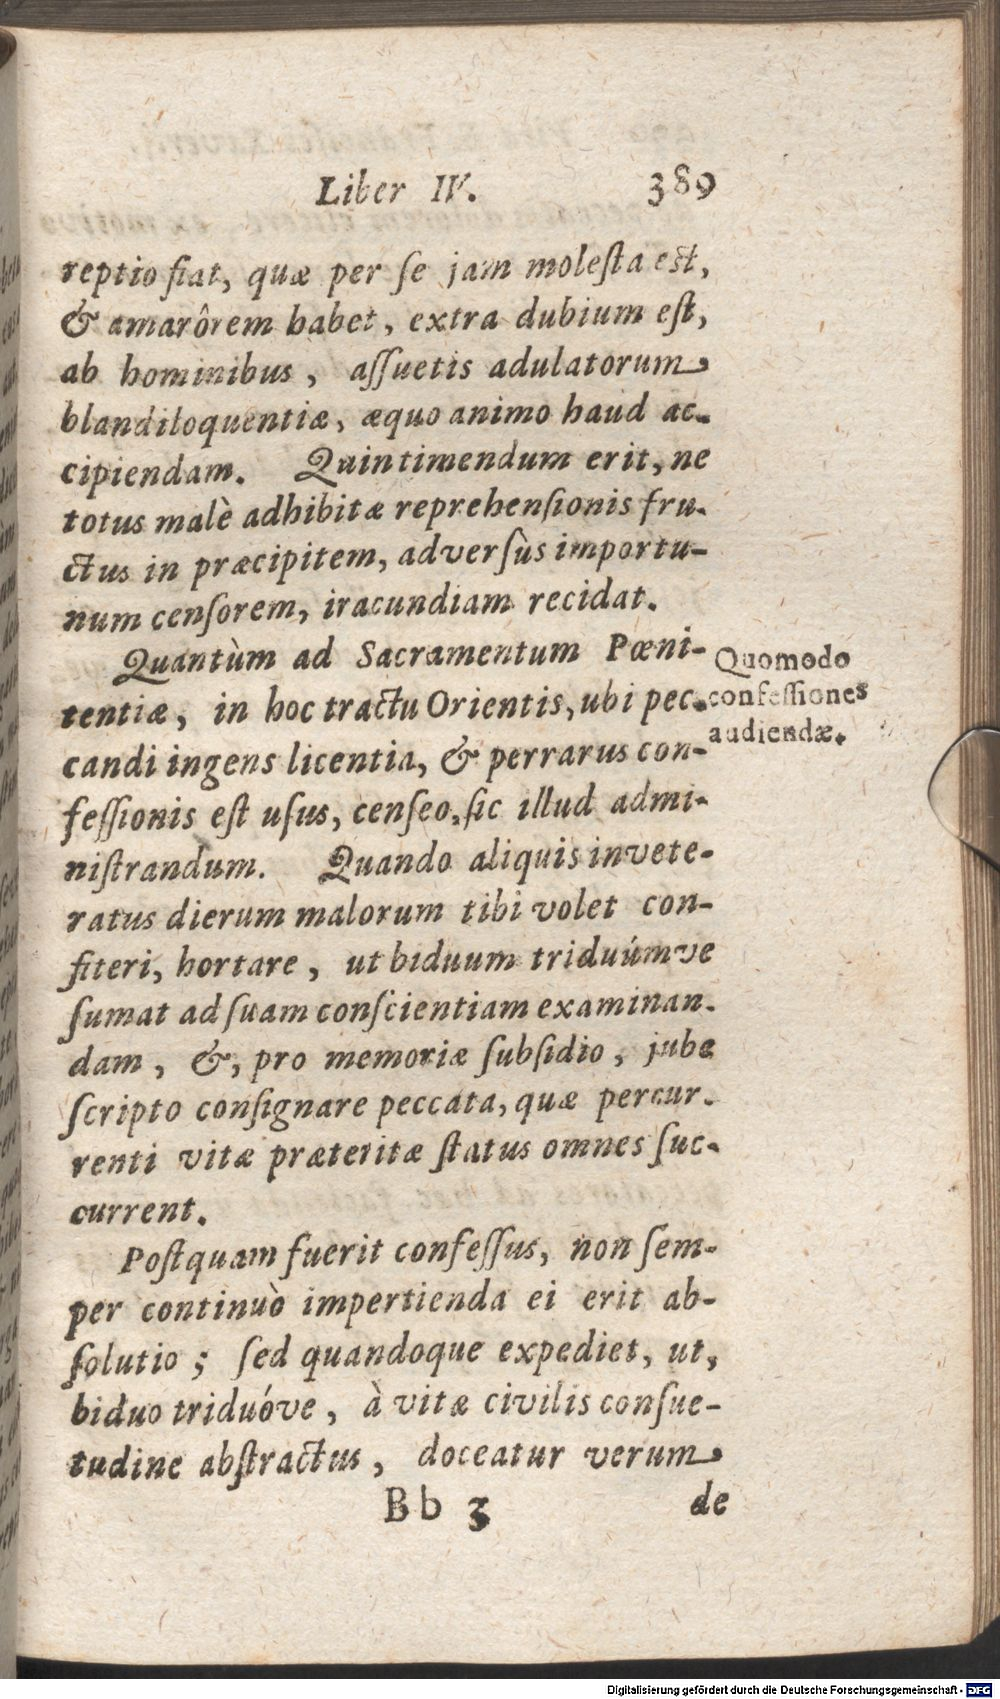 Liber IV. 389
reptio fiat, quæ per ſe jam moleſta eſt,
& amarôrem habet, extra dubium eſt,
ab hominibus, aſſuetis adulatorum
blandiloquentiæ, æquo animo haud ac-
cipiendam. Quin timendum erit, ne
totus malè adhibitæ reprehenſionis fru-
ctus in præcipitem, adverſùs importu-
num cenſorem, iracundiam recidat.
Quantùm ad Sacramentum Pœni-
tentiæ, in hoc tractu Orientis, ubi pec-
candi ingens licentia, & perrarus con-
feſſionis eſt uſus, cenſeo, ſic illud admi-
niſtrandum. Quando aliquis invete-
ratus dierum malorum tibi volet con-
fiteri, hortare, ut biduum triduúmve
ſumat ad ſuam conſcientiam examinan-
dam, &, pro memoriæ ſubſidio, jube
ſcripto conſignare peccata, quæ percur-
renti vitæ præteritæ ſtatus omnes ſuc-
current.
Poſtquam fuerit confeſſus, non ſem-
per continuò impertienda ei erit ab-
ſolutio; ſed quandoque expediet, ut,
biduo triduóve, à vitæ civilis conſue-
tudine abſtractus, doceatur verum
Bb 3 de
Quomodo
confeſſiones
audiendæ.
Digitalisierung gefördert durch die Deutsche Forschungsgemeinschaft - DFG